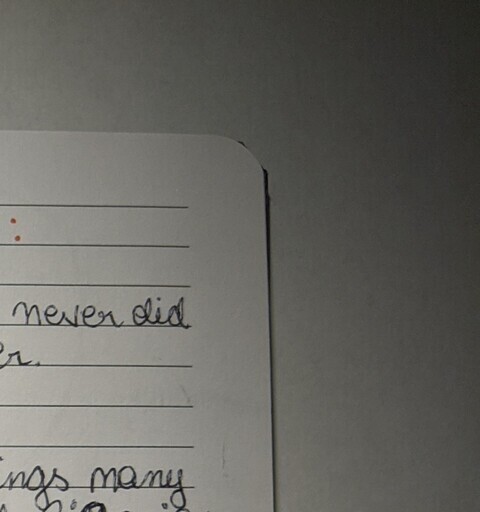 :
never did
er.
ings many